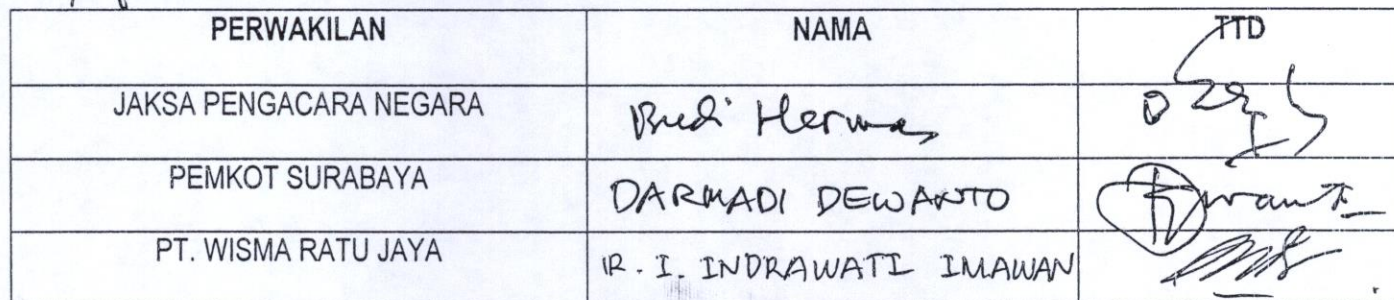 PERWAKILAN NAMA TTD
JAKSA PENGACARA NEGARA Budi Herman
PEMKOT SURABAYA DARMADI DEWANTO
PT. WISMA RATU JAYA IR. I. INDRAWATI IMAWAN